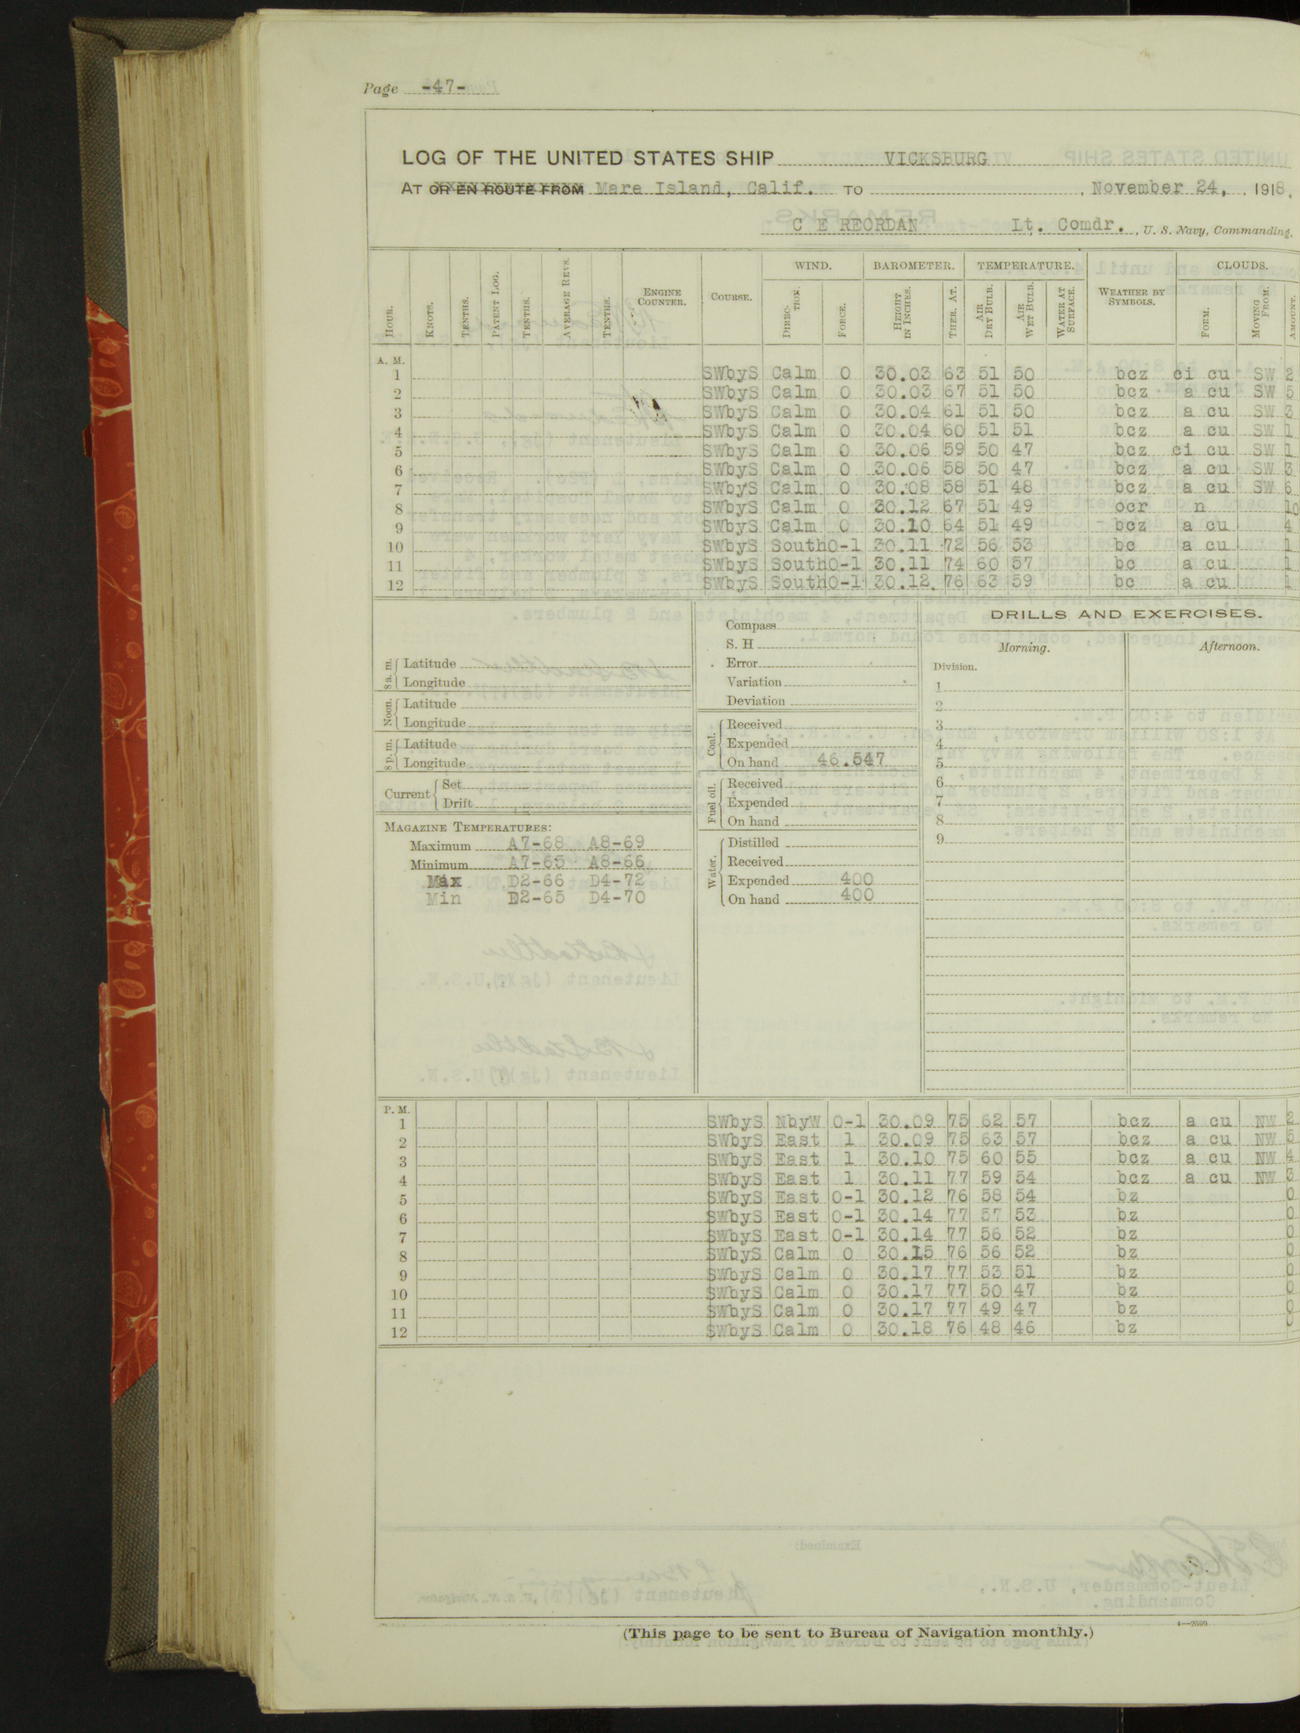 Page -47-
LOG OF THE UNITED STATES SHIP VICKSBURG
AT OR EN ROUTE FROM Mare Island, Calif. TO , November 24, , 1918,
C E REORDAN Lt. Comdr. , U. S. Navy, Commanding.
WIND. BAROMETER. TEMPERATURE. CLOUDS.
HOUR. KNOTS. TENTHS. PATENT LOG. TENTHS. AVERAGE REVS. TENTHS. ENGINE COUNTER. COURSE. DIREC- TION. FORCE. HEIGHT IN INCHES. THER. AT. AIR DRY BULB. AIR WET BULB. WATER AT SURFACE. WEATHER BY SYMBOLS. FORM. MOVING FROM. AMOUNT.
A. M.
1 SWbyS Calm 0 30.03 63 51 50 bcz ci cu SW 2
2 SWbyS Calm 0 30.03 67 51 50 bcz a cu SW 5
3 SWbyS Calm 0 30.04 61 51 50 bcz a cu SW 3
4 SWbyS Calm 0 30.04 60 51 51 bcz a cu SW 1
5 SWbyS Calm 0 30.06 59 50 47 bcz ci cu SW 1
6 SWbyS Calm 0 30.06 58 50 47 bcz a cu SW 3
7 SWbyS Calm 0 30.08 58 51 48 bcz a cu SW 6
8 SWbyS Calm 0 30.12 67 51 49 ocr n 10
9 SWbyS Calm 0 30.10 64 51 49 bcz a cu 4
10 SWbyS South 0-1 30.11 72 56 53 bc a cu 1
11 SWbyS South 0-1 30.11 74 60 57 bc a cu 1
12 SWbyS South 0-1 30.12 76 63 59 bc a cu 1
8 a. m. Latitude
Longitude
Noon. Latitude
Longitude
8 p. m. Latitude
Longitude
Current Set
Drift
MAGAZINE TEMPERATURES:
Maximum A7-68 A8-69
Minimum A7-65 A8-66
Max D2-66 D4-72
Min D2-65 D4-70
Compass
S. H
Error
Variation
Deviation
Coal. Received
Expended
On hand 46.547
Fuel oil. Received
Expended
On hand
Water. Distilled
Received
Expended 400
On hand 400
DRILLS AND EXERCISES.
Morning. Afternoon.
Division.
1
2
3
4
5
6
7
8
9
P. M.
1 SWbyS NbyW 0-1 30.09 75 62 57 bcz a cu NW 2
2 SWbyS East 1 30.09 75 63 57 bcz a cu NW 5
3 SWbyS East 1 30.10 75 60 55 bcz a cu NW 4
4 SWbyS East 1 30.11 77 59 54 bcz a cu NW 3
5 SWbyS East 0-1 30.12 76 58 54 bz 0
6 SWbyS East 0-1 30.14 77 57 53 bz 0
7 SWbyS East 0-1 30.14 77 56 52 bz 0
8 SWbyS Calm 0 30.15 76 56 52 bz 0
9 SWbyS Calm 0 30.17 77 53 51 bz 0
10 SWbyS Calm 0 30.17 77 50 47 bz 0
11 SWbyS Calm 0 30.17 77 49 47 bz 0
12 SWbyS Calm 0 30.18 76 48 46 bz 0
(This page to be sent to Bureau of Navigation monthly.)